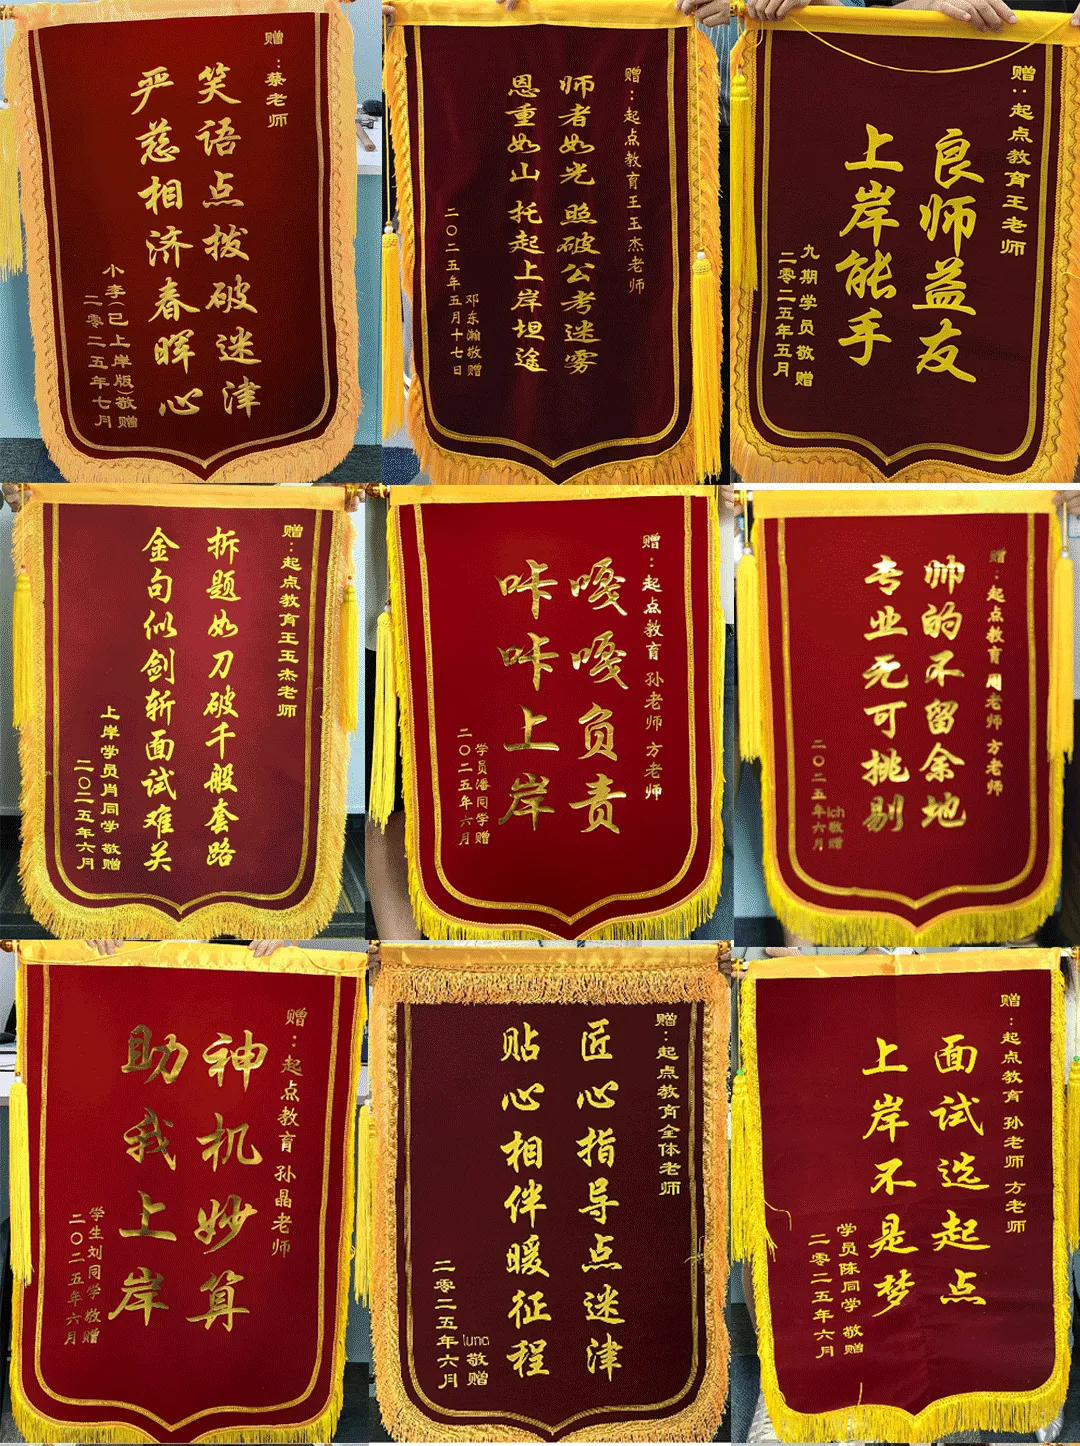 赠：蔡老师
笑语点拨破迷津
严慈相济春晖心
小李(已上岸版)敬赠
二零二五年七月
赠：起点教育王玉杰老师
师者如光 照破公考迷雾
恩重如山 托起上岸坦途
邓东瀚敬赠
二〇二五年五月十七日
赠：起点教育王老师
良师益友
上岸能手
九期学员敬赠
二零二五年五月
赠：起点教育王玉杰老师
拆题如刀破千般套路
金句似剑斩面试难关
上岸学员肖同学敬赠
二〇二五年六月
赠：起点教育 孙老师 方老师
嘎嘎负责
咔咔上岸
学员潘同学赠
二〇二五年六月
赠：起点教育 周老师 方老师
帅的不留余地
专业无可挑剔
lch敬赠
二〇二五年六月
赠：起点教育 孙晶老师
神机妙算
助我上岸
学生刘同学 敬赠
二〇二五年六月
赠：起点教育全体老师
匠心指导点迷津
贴心相伴暖征程
luna敬赠
二零二五年六月
赠：起点教育 孙老师 方老师
面试选起点
上岸不是梦
学员陈同学 敬赠
二零二五年六月